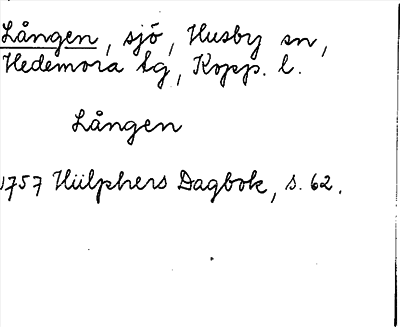 Lången, sjö, Husby sn,
Hedemora tg, Kopp. l.
Lången
1757 Hülphers Dagbok, s. 62.